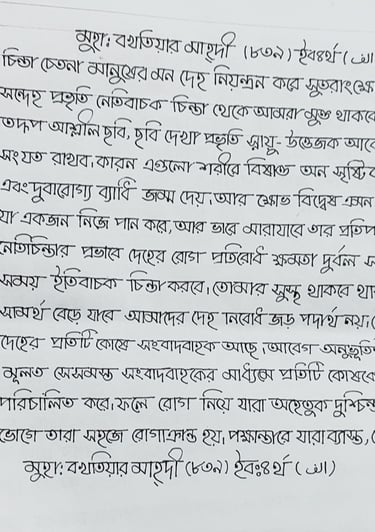 মুহা: বখতিয়ার মাহ্দী (৮৩৯) ইবঃ৪র্থ (الف)
চিন্তা চেতনা মানুষের মন দেহ নিয়ন্ত্রন করে সুতরাংক্ষো
সন্দেহ প্রভৃতি নেতিবাচক চিন্তা থেকে আমরা মুক্ত থাকবে
তদ্রূপ আশ্লীল ছবি, ছবি দেখা প্রভৃতি স্নায়ু-উত্তেজক আবে
সংযত রাখব, কারন এগুলো শরীরে বিষাক্ত অন সৃষ্টি ক
এবং দুরারোগ্য ব্যাধি জন্ম দেয়, আর ক্ষোভ বিদ্বেষ এমন
যা একজন নিজে পান করে, আর ভাবে মারাযাবে তার প্রতিপ
নেতিচিন্তার প্রভাবে দেহের রোগ প্রতিরোধ ক্ষমতা দুর্বল স
সময় ইতিবাচক চিন্তা করবে, তোমার সুস্থ থাকবে থা
সামর্থ বেড়ে যাবে আমাদের দেহ নিরেধি জড় পদার্থ নয়, (
দেহের প্রতিটি কোষে সংবাদবাহক আছে, আবেগ অনুভূতি
মূলত সেসমস্ত সংবাদবাহকের মাধ্যমে প্রতিটি কোষকে
পরিচালিত করে, ফলে রোগ নিয়ে যারা অহেতুক দুশ্চিন্ত
ভোগে তারা সহজে রোগাক্রান্ত হয়, পক্ষান্তরে যারা ব্যস্ত,
মুহা: বখতিয়ার মাহ্দী (৮৩৯) ইবঃ৪র্থ (الف)